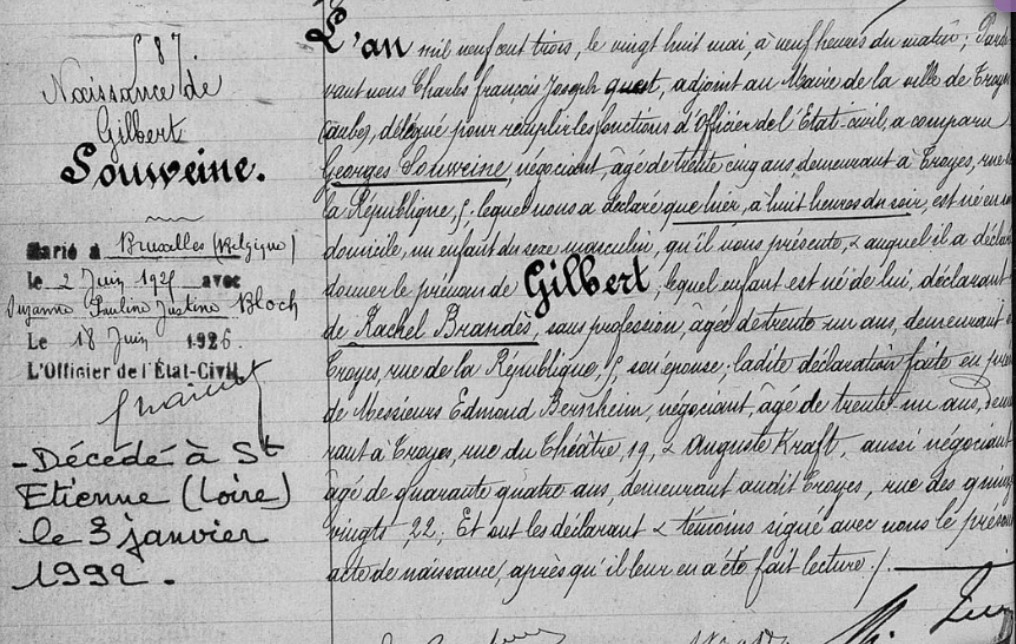 587
Naissance de
Gilbert
Souweine.
Marié à Bruxelles (Belgique)
le 2 Juin 192 avec
Suzanne Pauline Justine Bloch
Le 18 Juin 1926.
L'Officier de l'État-Civil,
- Décédé à St
Etienne (Loire)
le 3 janvier
1992.
L'an mil neuf cent trois, le vingt huit mai, à neuf heures du matin; Parde
vant nous Charles françois Joseph quest, adjoint au Maire de la ville de Troyes
(aube), délégué pour remplir les fonctions d'Officier de l'Etat-civil, a comparu
Georges Souweine, négociant, âgé de trente cinq ans, demeurant à Troyes, rue de
la République, 5. lequel nous a déclaré que hier, à huit heures du soir, est né en son
domicile, un enfant du sexe masculin, qu'il nous présente, & auquel il a déclaré
donner le prénom de Gilbert, lequel enfant est né de lui, déclarant
de Rachel Brandès, sans profession, âgée de trente un ans, demeurant à
Troyes, rue de la République, 5, son épouse; ladite déclaration faite en pré
de Messieurs Edmond Bernheim, négociant, âgé de trente-un ans, deme
rant à Troyes, rue du Théâtre, 19, & Auguste Kraft, aussi négociant
âgé de quarante quatre ans, demeurant audit Troyes, rue des quinze
vingts 22; Et ont les déclarant & témoins signé avec nous le présent
acte de naissance, après qu'il leur en a été fait lecture ./.